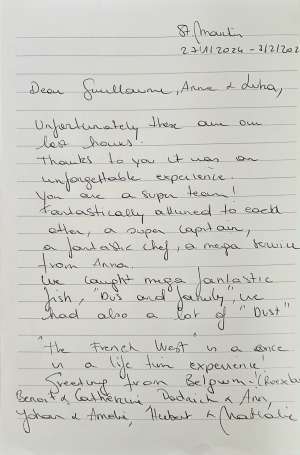 St. Martin
27/1/2024 - 3/2/202
Dear Guillaume, Anna & Luka,
Unfortunately these are our
last hours.
Thanks to you it was an
unforgettable experience.
You are a super team!
Fantastically attuned to each
other, a super capitain,
a fantastic chef, a mega service
from Anna.
We caught mega fantastic
fish, "Dus and family", we
had also a lot of "Dust"
"The French West" is a once
in a life tim experience!
Greeting from Belgium!
Benoit & Catherine, & Ann,
Johan & Amelie, Hubert & Nathalie